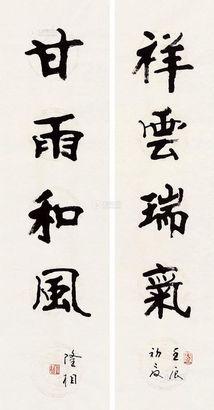 祥雲瑞氣
壬辰
初夏
甘雨和風
隆相